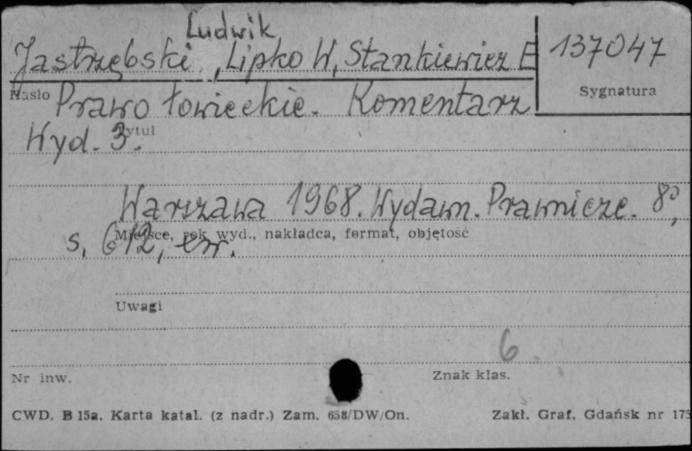 Ludwik
Jastrzębski , Lipko W, Stankiewicz E 137047
Hasło Prawo łowieckie. Komentarz Sygnatura
Wyd. 3. Tytuł
Warszawa 1968. Wydawn. Prawnicze. 8⁰,
Miejsce, rok wyd., nakładca, format, objętość
s. 612,
Uwagi
6
Nr inw. Znak klas.
CWD. B 15a. Karta katal. (z nadr.) Zam. 658/DW/On. Zakł. Graf. Gdańsk nr 175